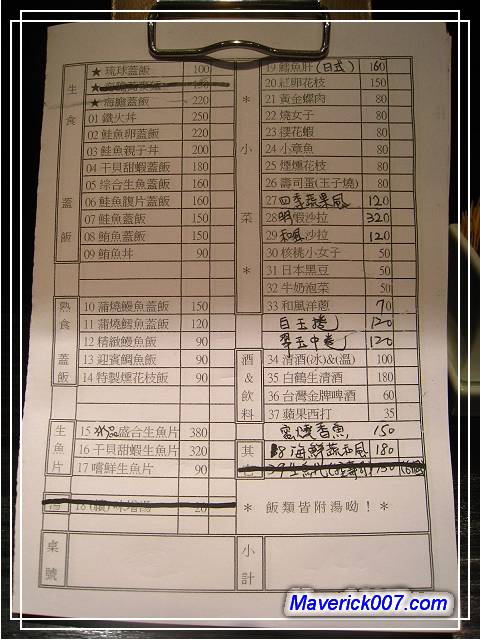 生食蓋飯
★ 琉球蓋飯 100
★ 海膽蓋飯 220
01 鐵火丼 250
02 鮭魚卵蓋飯 220
03 鮭魚親子丼 200
04 干貝甜蝦蓋飯 180
05 綜合生魚蓋飯 160
06 鮭魚腹片蓋飯 160
07 鮭魚蓋飯 150
08 鮪魚蓋飯 150
09 鮪魚丼 90
熟食蓋飯
10 蒲燒鰻魚蓋飯 150
11 蒲燒鯛魚蓋飯 120
12 精緻鰻魚飯 90
13 迎賓鯛魚飯 90
14 特製煙花枝飯 90
生魚片
15 盛合生魚片 380
16 干貝甜蝦生魚片 320
17 嚐鮮生魚片 90
湯
18 (續) 味增湯 20
桌號
* 小菜 *
19 鱈魚肝 (日式) 160
20 紅卵花枝 150
21 黃金螺肉 80
22 燒女子 80
23 櫻花蝦 80
24 小章魚 80
25 煙燻花枝 80
26 壽司蛋(玉子燒) 80
27 四季蘋果風 120
28 明蝦沙拉 320
29 和風沙拉 120
30 核桃小女子 50
31 日本黑豆 50
32 牛奶泡菜 50
33 和風洋蔥 70
白玉捲 120
翠玉中卷 120
酒&飲料
34 清酒(冰)&(溫) 100
35 白鶴生清酒 180
36 台灣金牌啤酒 60
37 蘋果西打 35
蜜燻香魚 150
其
38 海鮮蔬和風 180
39 150
* 飯類皆附湯呦！*
小計
Maverick007.com